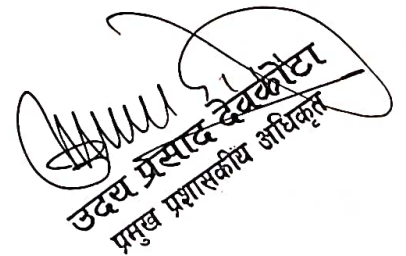 उदय प्रसाद देवकोटा
प्रमुख प्रशासकीय अधिकृत